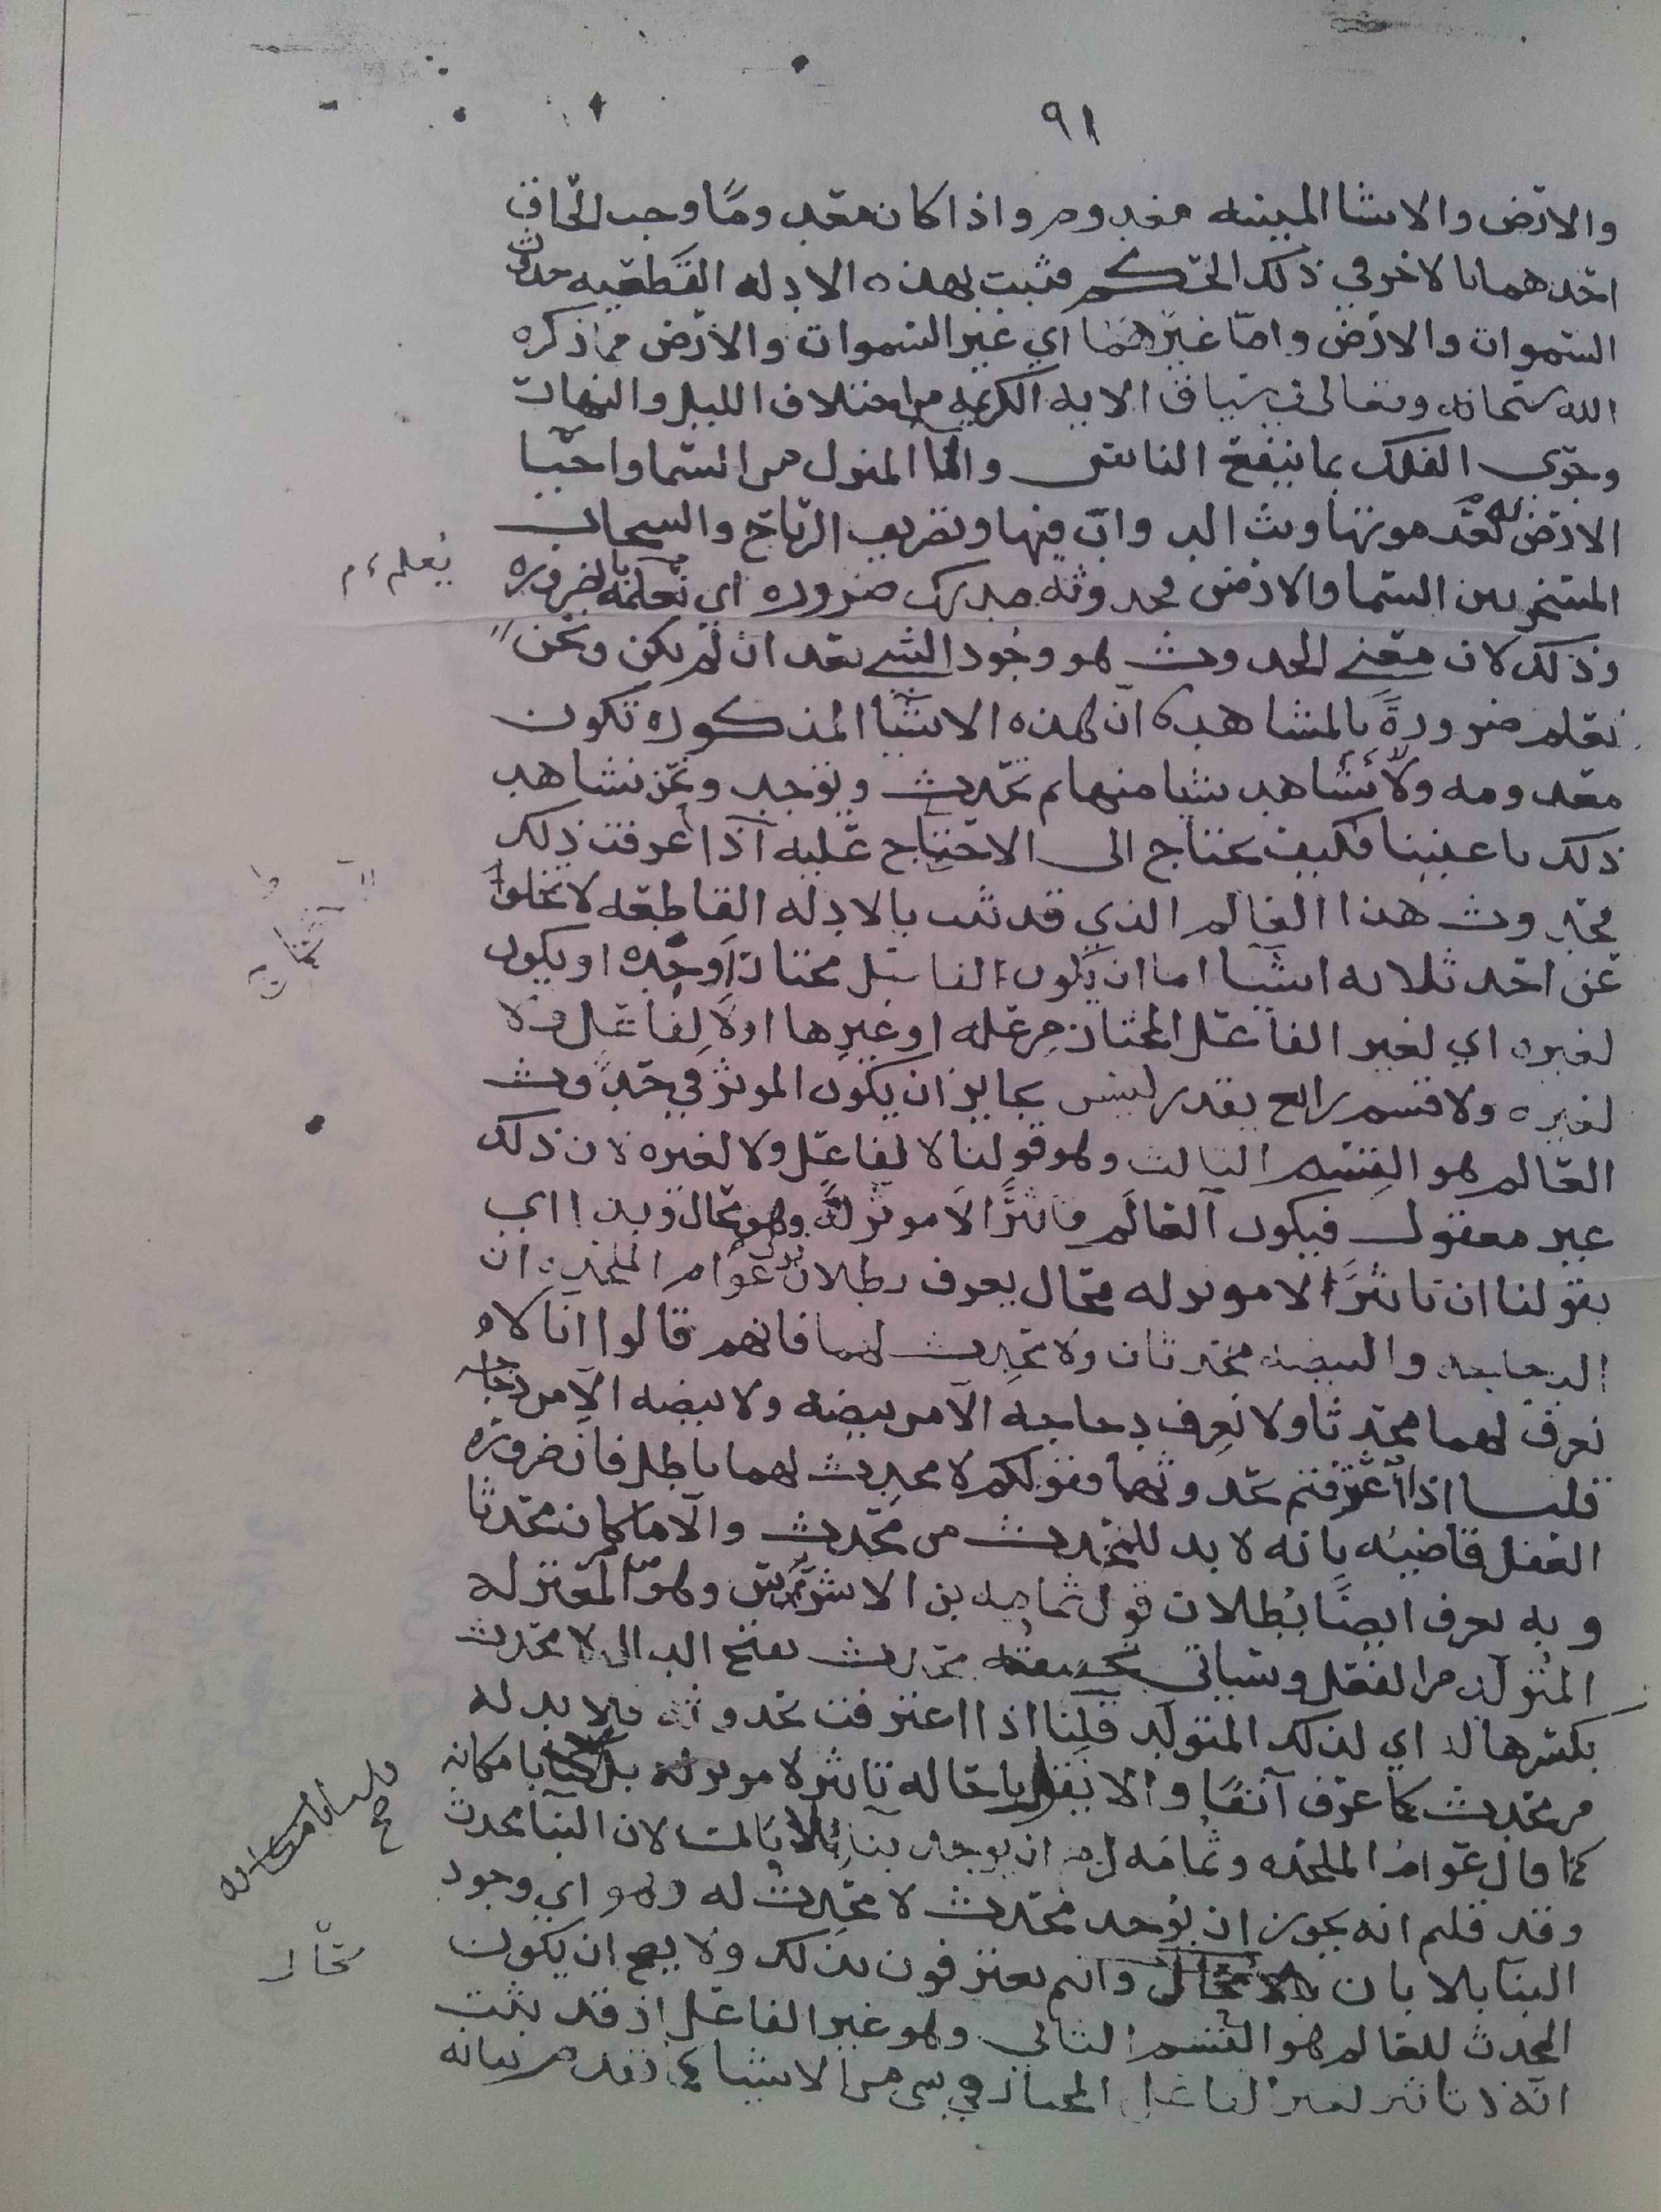 ٩١
والارض والاشيا المبينه معدوم واذا كان معدوما وجب الحاق
احدهما بالاخر في ذلك الحكم فثبت بهذه الادله القطعيه حدوث
السموات والارض واما غيرهما اي غير السموات والارض مما ذكره
الله سبحانه وتعالى في سياق الايه الكريمه من اختلاف الليل والنهار
وجري الفلك بما ينفع الناس والما المنزل من السما واحيا
الارض به بعد موتها وبث الدواب فيها وتصريف الرياح والسحاب
المسخر بين السما والارض فحدوثه مدرك ضروره اي نعلمه بضروره
يعلم م
وذلك لان معنى الحدوث هو وجود الشي بعد ان لم يكن ونحن
نعلم ضرورة بالمشاهده ان هذه الاشيا المذكوره تكون
معدومه ولا نشاهد شيا منها ثم تحدث وتوجد ونحن نشاهد
ذلك باعيننا فكيف يحتاج الى الاحتجاج عليه اذا عرفت ذلك
فحدوث هذا العالم الذي قد ثبت بالادله القاطعه لا يخلوا
عن احد ثلاثه اشيا اما ان يكون الفاعل مختار اوجده او يكون
لغيره اي لغير الفاعل المختار من عله او غيرها او لا لفاعل ولا
لغيره ولا قسم رابع يقدر ليس بجايز ان يكون الموثر في حدوث
العالم هو القسم الثالث وهو قولنا لا لفاعل ولا لغيره لان ذلك
غير معقول فيكون العالم تاثيرا لا موثر له وهو محال وبهذا اي
بقولنا ان تاثيرا لا موثر له محال يعرف بطلان قول عوام الملحده ان
الدجاجه والبيضه محدثان ولا محدث لهما فانهم قالوا انا لا
نعرف لهما محدثا ولا نعرف دجاجه الا من بيضه ولا بيضه الا من دجاجه
قلنا اذا اعترفتم بحدوثهما فقولكم لا محدث لهما باطل فان ضروره
العقل قاضيه بانه لا بد للمحدث من محدث والا ما كان محدثا
وبه يعرف ايضا بطلان قول ثمامه بن الاشرس وهو المعتزله
المتولد من الفعل وسياتي تحقيقه محدث بفتح الدال لا محدث
بكسرها له اي لذلك المتولد قلنا اذا اعترفت بحدوثه فلا بد له
من محدث كما عرف انفا والا نقل باحاله تاثير لا موثر له بل قلنا بامكانه
قلنا بامكانه صح
كما قال عوام الملحده وثمامه لزم ان يوجد بنا بلا بان لان البنا محدث
وقد قلتم انه يجوز ان يوجد محدث لا محدث له وهو اي وجود
البنا بلا بان محال وانتم تعترفون بذلك ولا يصح ان يكون
محال
المحدث للعالم هو القسم الثاني وهو غير الفاعل اذ قد ثبت
انه لا تاثير لغير الفاعل المختار في شي من الاشيا كما تقدم بيانه